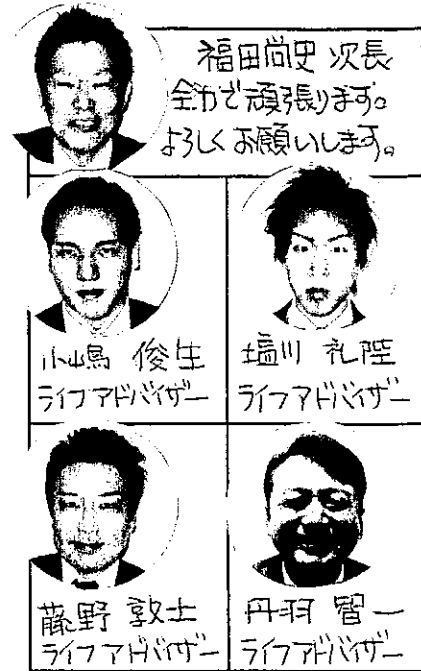 福田尚史 次長
全力で頑張ります。
よろしくお願いします。
小嶋 俊生
ライフアドバイザー
塩川 礼陛
ライフアドバイザー
藤野 敦士
ライフアドバイザー
丹羽 智一
ライフアドバイザー